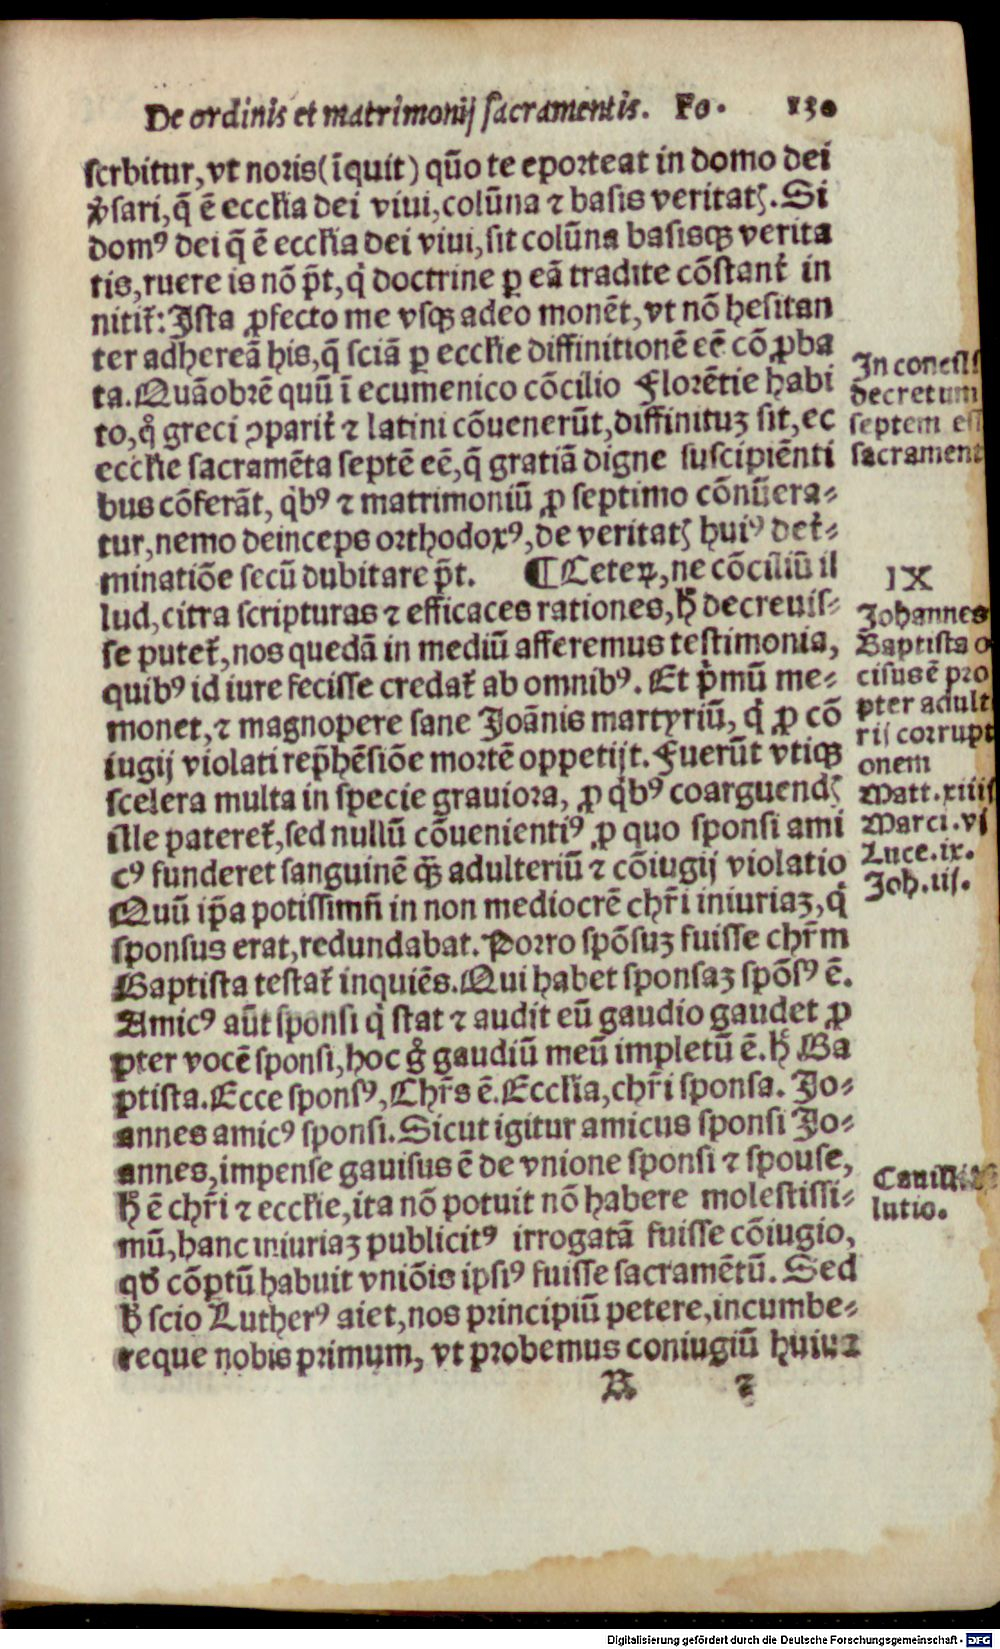 De ordinis et matrimonij sacramentis. Fo. 130
scrbitur, vt noris (īquit) quō te eporteat in domo dei
ꝟsari, q̄ ē eccłia dei viui, colūna ⁊ basis veritatꝭ. Si
domꝰ dei q̄ ē eccłia dei viui, sit colūna basisqꝫ verita
tis, ruere is nō pt̄, qͥ doctrine ꝑ eā tradite cōstanť in
nitiť: Ista ꝓfecto me vsqꝫ adeo monēt, vt nō hesitan
ter adhereā his, q̄ sciā ꝑ eccłie diffinitionē eē cōꝓba
ta. Quāobrē quū ī ecumenico cōcilio Florētie habi
to, qͦ greci ꝯpariť ⁊ latini cōuenerūt, diffinituꝫ sit, ec
eccłie sacramēta septē eē, q̄ gratiā digne suscipiēnti
bus cōferāt, qͥbꝰ ⁊ matrimoniū ꝓ septimo cōnūera⸗
tur, nemo deinceps orthodoxꝰ, de veritatꝭ huiꝰ deť⸗
minatiōe secū dubitare pt̄. ¶ Ceteꝝ, ne cōciliū il
lud, citra scripturas ⁊ efficaces rationes, h̄ decreuis⸗
se puteť, nos quedā in mediū afferemus testimonia,
quibꝰ id iure fecisse credať ab omnibꝰ. Et pͥmū me⸗
monet, ⁊ magnopere sane Joānis martyriū, qͥ ꝓ cō
iugij violati rep̄hēsiōe mortē oppetijt. Fuerūt vtiqꝫ
scelera multa in specie grauiora, ꝓ qͥbꝰ coarguendꝭ
ille patereť, sed nullū cōuenientiꝰ ꝓ quo sponsi ami
cꝰ funderet sanguinē qꝫ̄ adulteriū ⁊ cōiugij violatio
Quū ip̄a potissimū in non mediocrē chr̄i iniuriaꝫ, qͥ
sponsus erat, redundabat. Porro spōsuꝫ fuisse chr̄m
Baptista testať inquiēs. Qui habet sponsaꝫ spōsꝰ ē.
Amicꝰ aūt sponsi qͥ stat ⁊ audit eū gaudio gaudet ꝓ
pter vocē sponsi, hoc gͦ gaudiū meū impletū ē. h̄ Ba
ptista. Ecce sponsꝰ, Chr̄s ē. Eccłia, chr̄i sponsa. Jo⸗
annes amicꝰ sponsi. Sicut igitur amicus sponsi Jo⸗
annes, impense gauisus ē de vnione sponsi ⁊ spouse,
h̄ ē chr̄i ⁊ eccłie, ita nō potuit nō habere molestissi⸗
mū, hanc iniuriaꝫ publicitꝰ irrogatā fuisse cōiugio,
qđ cōptū habuit vniōis ipsiꝰ fuisse sacramētū. Sed
h̄ scio Lutherꝰ aiet, nos principiū petere, incumbe⸗
reque nobis primum, vt probemus coniugiū huiuz
R 2
In
decretum
septem
IX
Johannes
Baptista
cisus ē pro
pter adult
rij corrupt
onem
Matt. xiiij
Marci. vj
Luce. ix.
Joh. iij.
lutio.
Digitalisierung gefördert durch die Deutsche Forschungsgemeinschaft - DFG